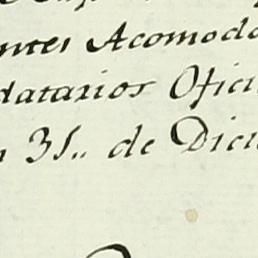 ntes Acomoda
datarios Ofici
n 31.. de Dici